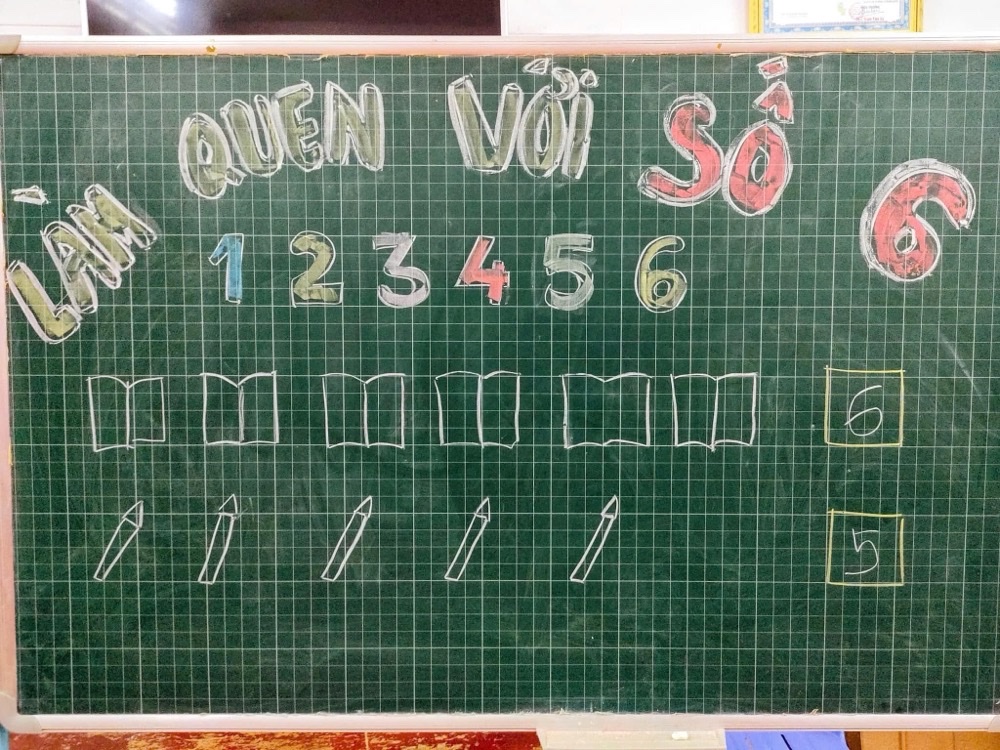 LÀM QUEN VỚI SỐ 6
1 2 3 4 5 6
6
5